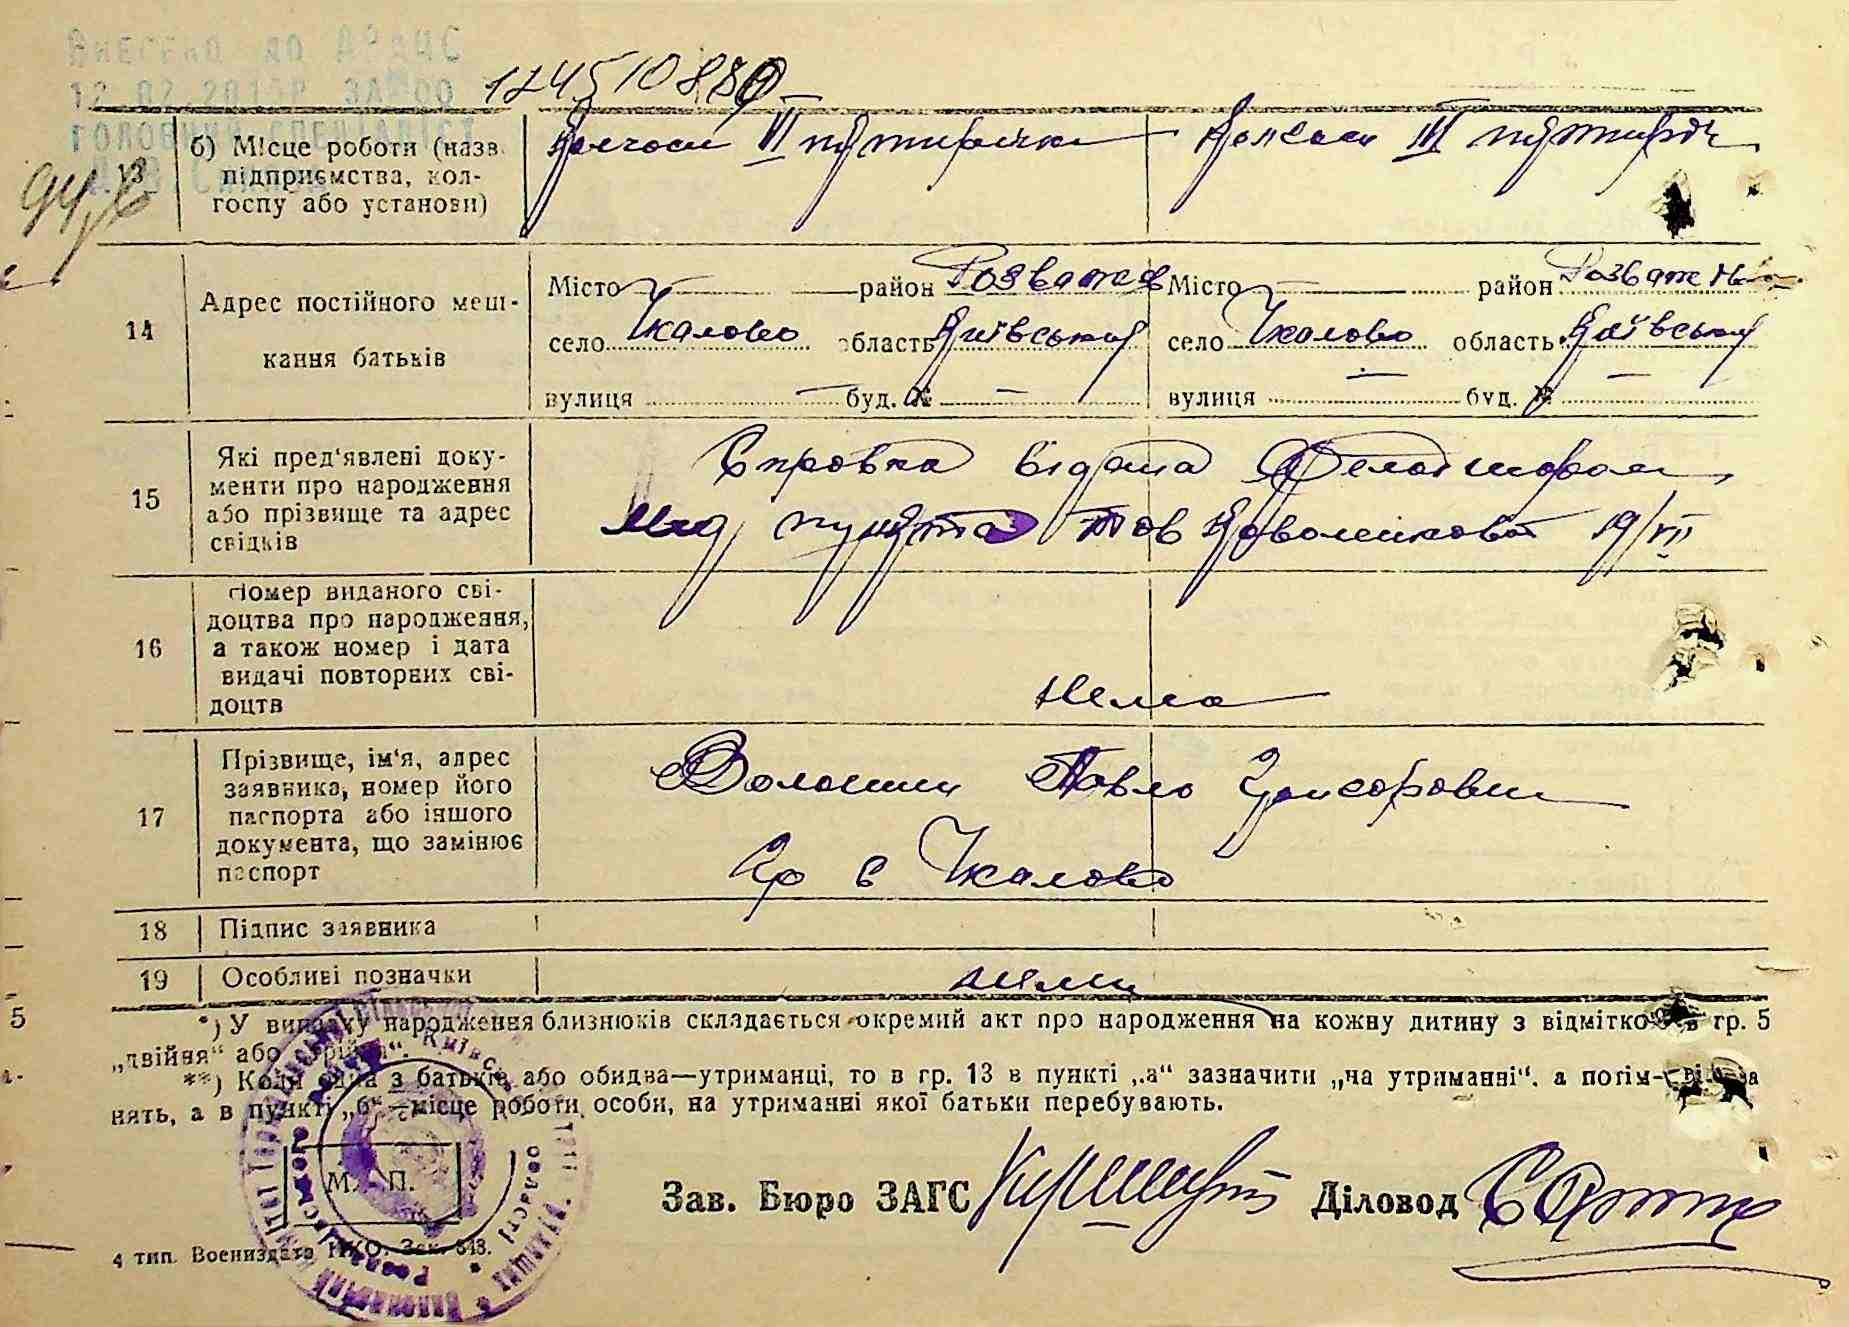 Внесено до ДРАЦС
12 02 2015р ЗА 00
12451088
ГОЛОВНИЙ СПЕЦІАЛІСТ
13
б) Місце роботи (назв.
підприємства, кол-
госпу або установи)
Колгосп III пятирічки
Колгосп III пятиріч
14
Адрес постійного меш-
кання батьків
Місто — район Розважев
село Чкалово область Київський
вулиця — буд. № —
Місто — район Розважев
село Чкалово область Київський
вулиця — буд. № —
15
Які пред'явлені доку-
менти про народження
або прізвище та адрес
свідків
Справка видана Фельдшером
мед пункта тов 19/VII
16
Номер виданого сві-
доцтва про народження,
а також номер і дата
видачі повторних сві-
доцтв
Нема
17
Прізвище, ім'я, адрес
заявника, номер його
паспорта або іншого
документа, що замінює
паспорт
Волошин Павло
Гр с Чкалово
18 Підпис заявника
19 Особливі позначки
нема
*) У випадку народження близнюків складається окремий акт про народження на кожну дитину з відміткою в гр. 5
„двійня“ або „трійня“.
**) Коли одна з батьків або обидва—утриманці, то в гр. 13 в пункті „а“ зазначити „на утриманні“, а потім—
нять, а в пункті „б“—місце роботи особи, на утриманні якої батьки перебувають.
М. П.
Зав. Бюро ЗАГС
Діловод
4 тип. Воениздата НКО. Зак. 843.
5